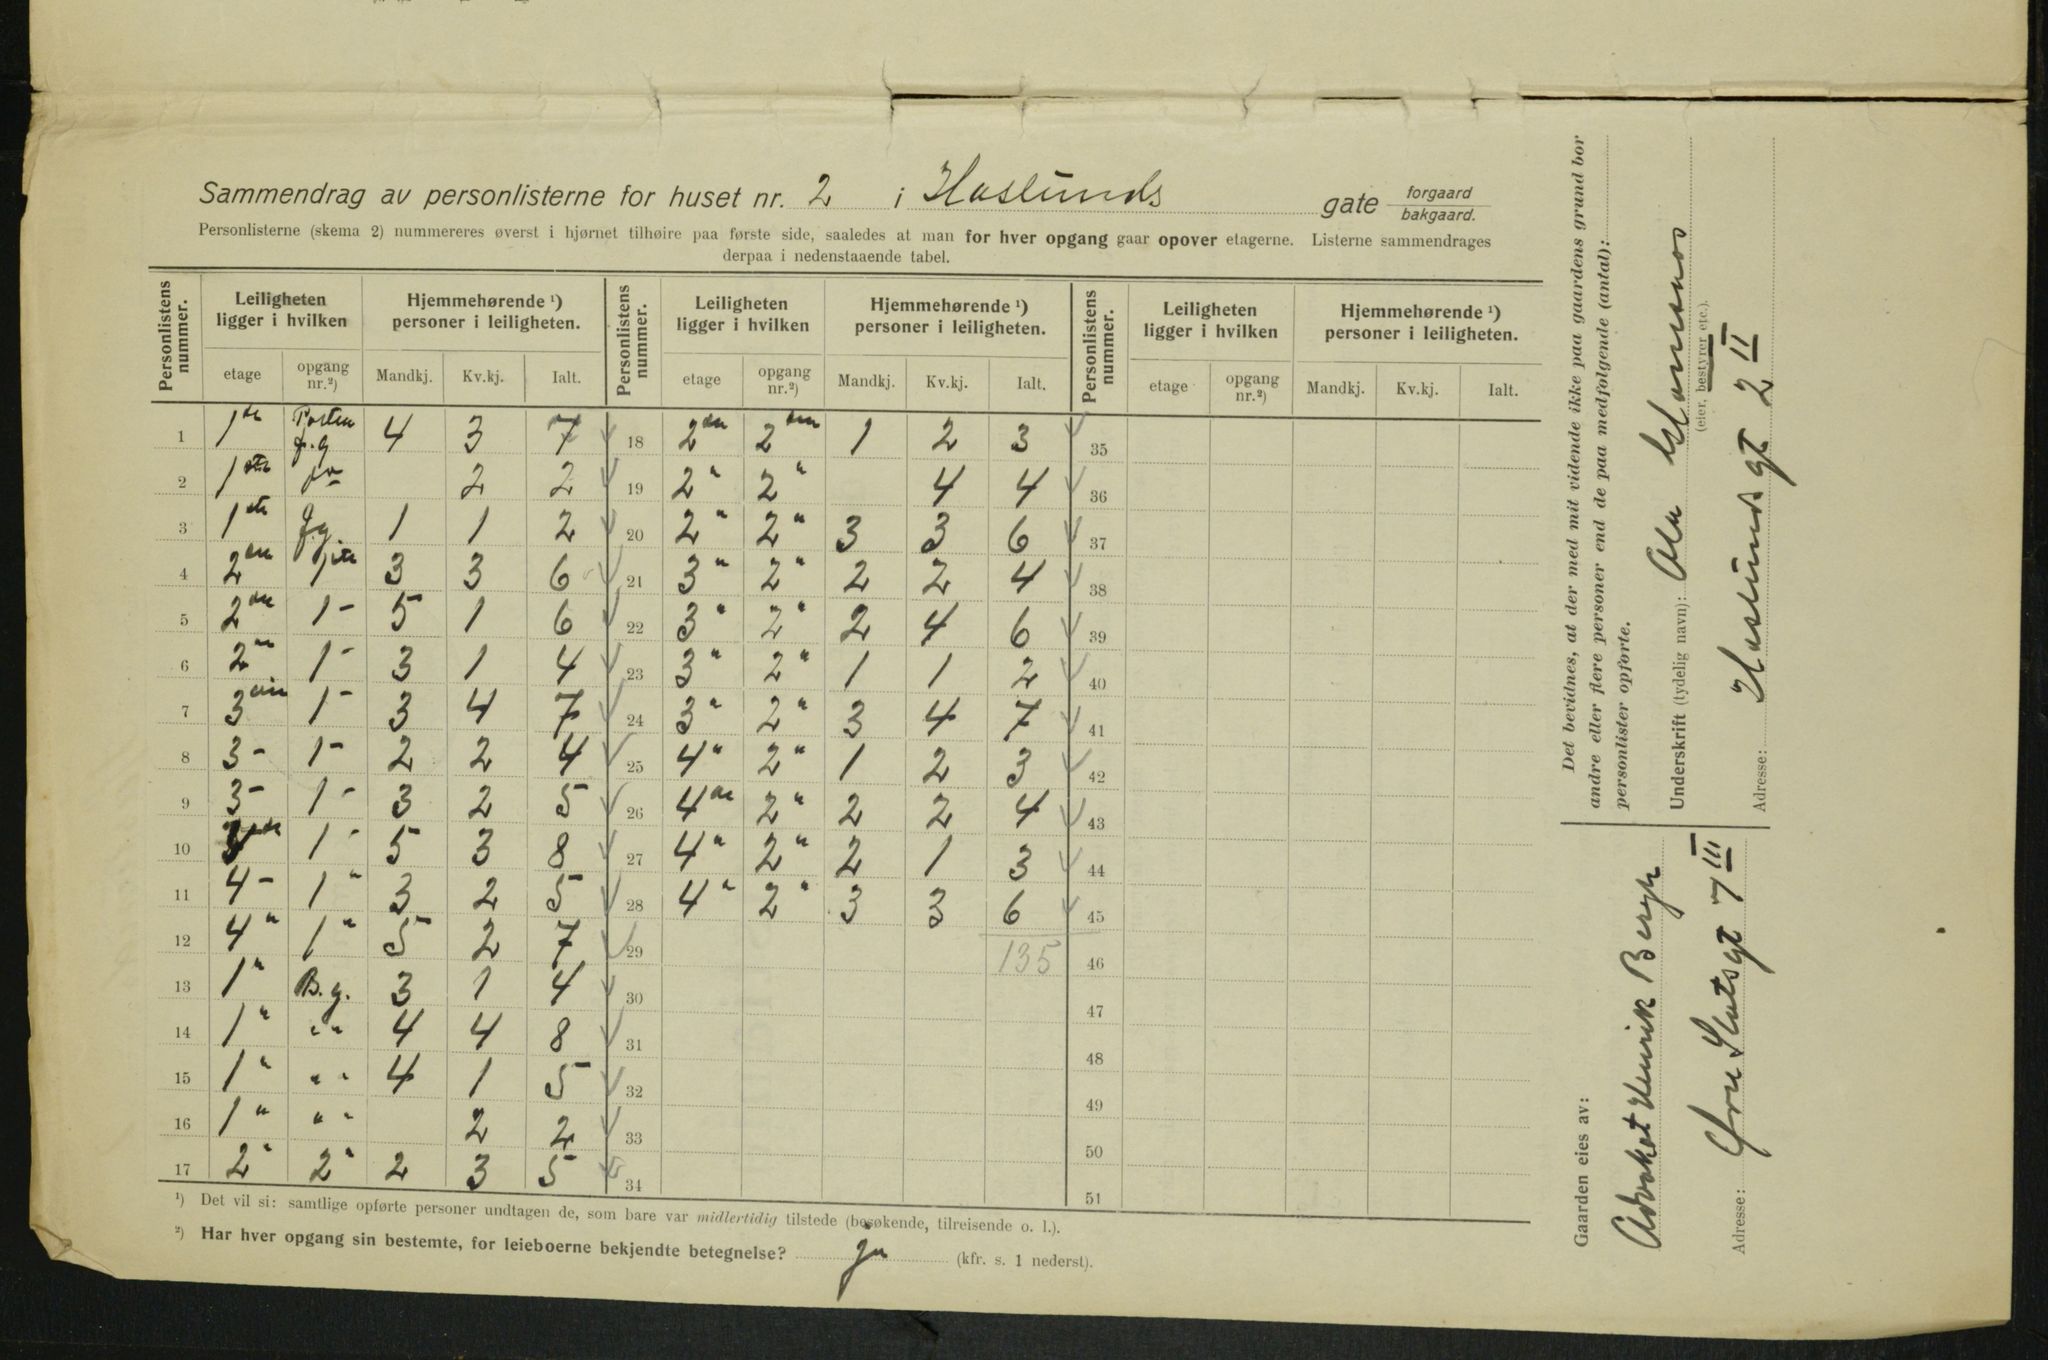 Sammendrag av personlisterne for huset nr. 2 i Haslunds gate forgaard bakgaard.
Personlisterne (skema 2) nummereres øverst i hjørnet tilhøire paa første side, saaledes at man for hver opgang gaar opover etagerne. Listerne sammendrages
derpaa i nedenstaaende tabel.
Personlistens nummer. Leiligheten ligger i hvilken Hjemmehørende ¹) personer i leiligheten. Personlistens nummer. Leiligheten ligger i hvilken Hjemmehørende ¹) personer i leiligheten. Personlistens nummer. Leiligheten ligger i hvilken Hjemmehørende ¹) personer i leiligheten.
etage opgang nr.²) Mandkj. Kv.kj. Ialt. etage opgang nr.²) Mandkj. Kv.kj. Ialt. etage opgang nr.²) Mandkj. Kv.kj. Ialt.
1 1ste f.g 4 3 7 18 2den 2den 1 2 3 35
2 1ste 2 2 19 2" 2" 4 4 36
3 1ste f.g. 1 1 2 20 2" 2" 3 3 6 37
4 2den 1ste 3 3 6 21 3" 2" 2 2 4 38
5 2den 1- 5 1 6 22 3" 2" 2 4 6 39
6 2" 1- 3 1 4 23 3" 2" 1 1 2 40
7 3die 1- 3 4 7 24 3" 2" 3 4 7 41
8 3- 1- 2 2 4 25 4" 2" 1 2 3 42
9 3- 1- 3 2 5 26 4de 2" 2 2 4 43
10 4de 1- 5 3 8 27 4" 2" 2 1 3 44
11 4- 1" 3 2 5 28 4" 2" 3 3 6 45
12 4" 1" 5 2 7 29 135 46
13 1" B.g. 3 1 4 30 47
14 1" " " 4 4 8 31 48
15 1" " " 4 1 5 32 49
16 1" " " 2 2 33 50
17 2" 2" 2 3 5 34 51
¹) Det vil si: samtlige opførte personer undtagen de, som bare var midlertidig tilstede (besøkende, tilreisende o. l.).
²) Har hver opgang sin bestemte, for leieboerne bekjendte betegnelse? ja (kfr. s. 1 nederst).
Det bevidnes, at der med mit vidende ikke paa gaardens grund bor
andre eller flere personer end de paa medfølgende (antal):
personlister opførte.
Underskrift (tydelig navn):
(eier, bestyrer etc.).
Adresse: Haslunds gt 2 II
Gaarden eies av:
Advokat Henrik Bergh
Adresse: gt 7 III